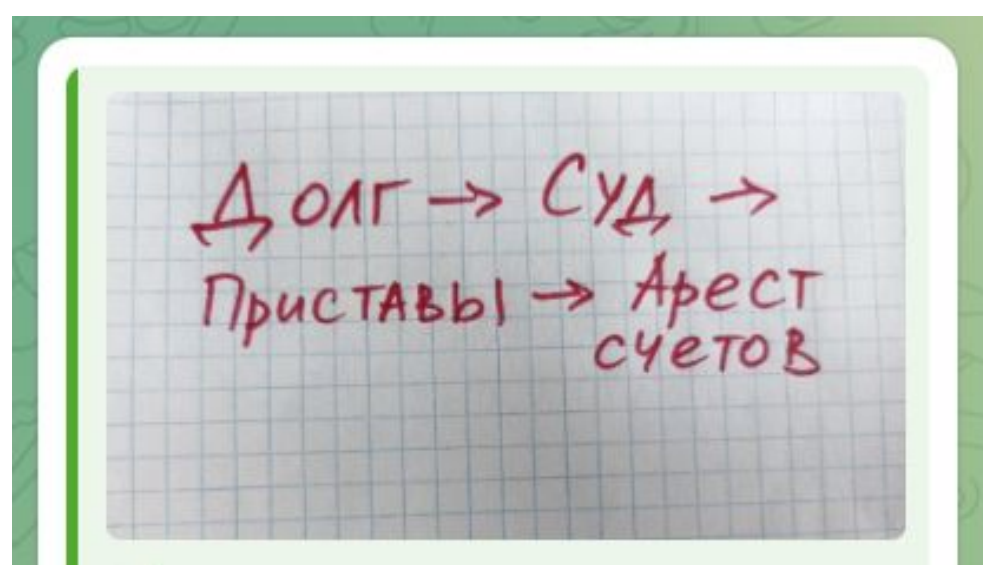 Долг → Суд →
Приставы → Арест
счетов